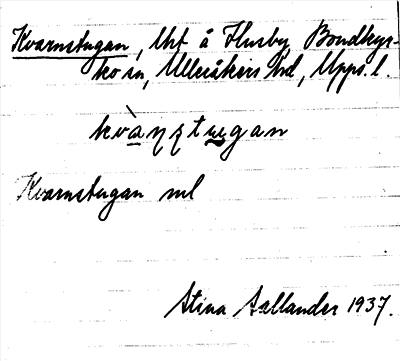 Kvarnstugan, lht å Husby, Bondkyr-
ko sn, Ulleråkers hd, Upps. l.
kvà̱ɳʂtu̱gan
Kvarnstugan ml
Stina Sallander 1937.